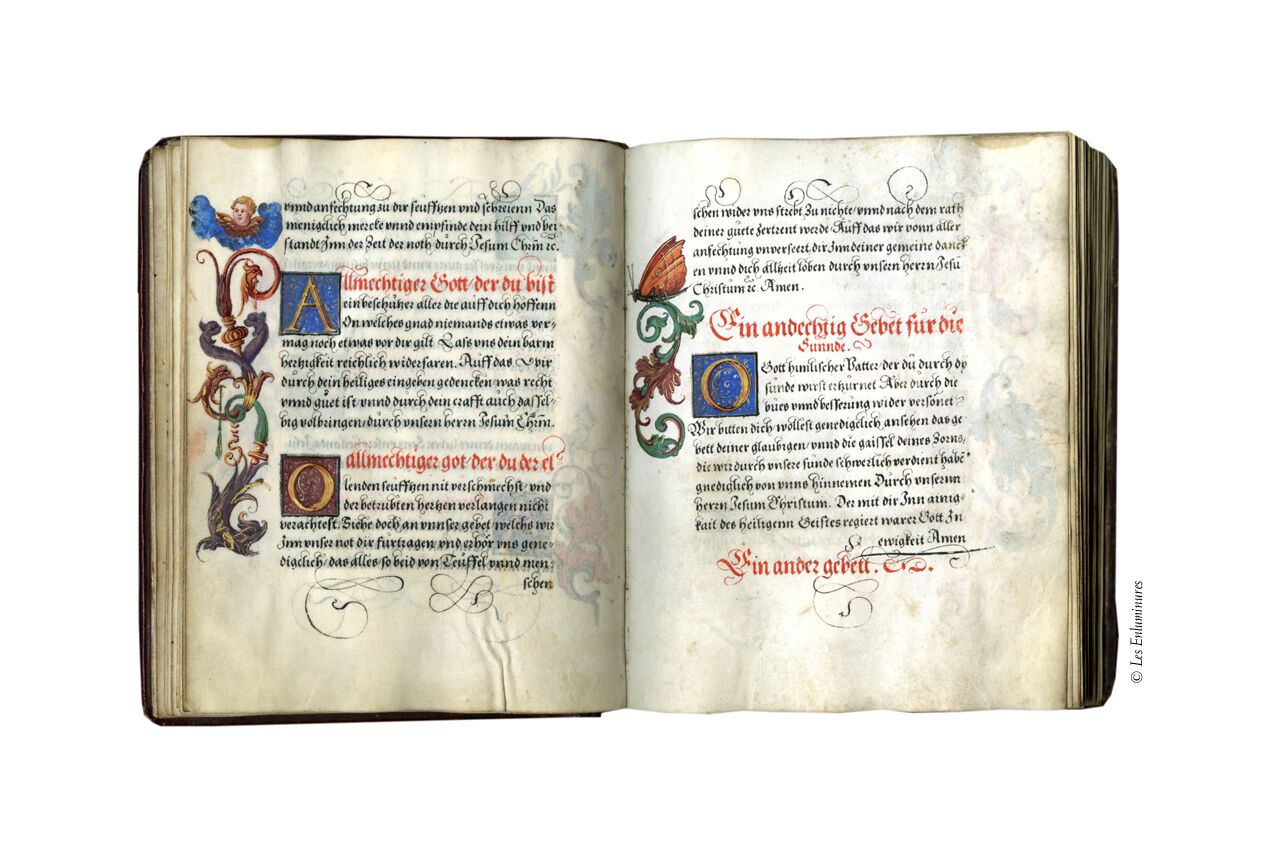 vnnd anfechtung zu dir seuffzen vnd schreienn Das
meniglich mercke vnnd empfinde dein hilff vnd bei
standt Inn der Zeit der noth durch Jesum Chrin ꝛc.
Allmechtiger Gott/ der du bist
ein beschutzer aller die auff dich hoffenn
On welches gnad niemands etwas ver-
mag noch etwas vor dir gilt Lass vns dein barm
hertzigkeit reichlich widerfaren. Auff das wir
durch dein heiliges eingeben gedencken was recht
vnnd guet ist/ vnnd durch dein crafft auch dasssel-
big volbringen/ durch vnsern herrn Jesum Chrin.
O allmechtiger got/ der du der el-
lenden seuffzen nit verschmechst/ vnd
der betrubten hertzen verlangen nicht
verachtest. Siehe doch an vnnser gebet/ welchs wir
Inn vnser not dir furtragen/ vnd erhör vns gene-
digclich/ das alles/ so beid von Teuffel vnnd men-
schen
schen wider vns strebt Zu nichte/ vnnd nach dem rath
deiner guete zertrent werde/ Auff das wir vonn aller
anfechtung vnverseert, dir Inn deiner gemeine danck
en vnnd dich allzeit loben durch vnsern herrn Jesu
Christum ꝛc. Amen.
Ein andechtig Gebet fur die
Sunnde.
O Gott himlischer Vatter/ der du durch dy
sunde wirst erzurnet Aber durch die
bues vnnd besserung wider versonet
Wir bitten dich/ wollest genediglich ansehen das ge
bett deiner glaubigen/ vnnd die gaissel deines Zorns,
die wir durch vnsere sunde schwerlich verdient habe͂
gnediglich von vnns hinnemen Durch vnsernn
herrn Jesum Christum. Der mit dir Inn ainig-
kait des heiligenn Geistes regiert warer Gott In
ewigkeit Amen
Ein ander gebett.
© Les Enluminures